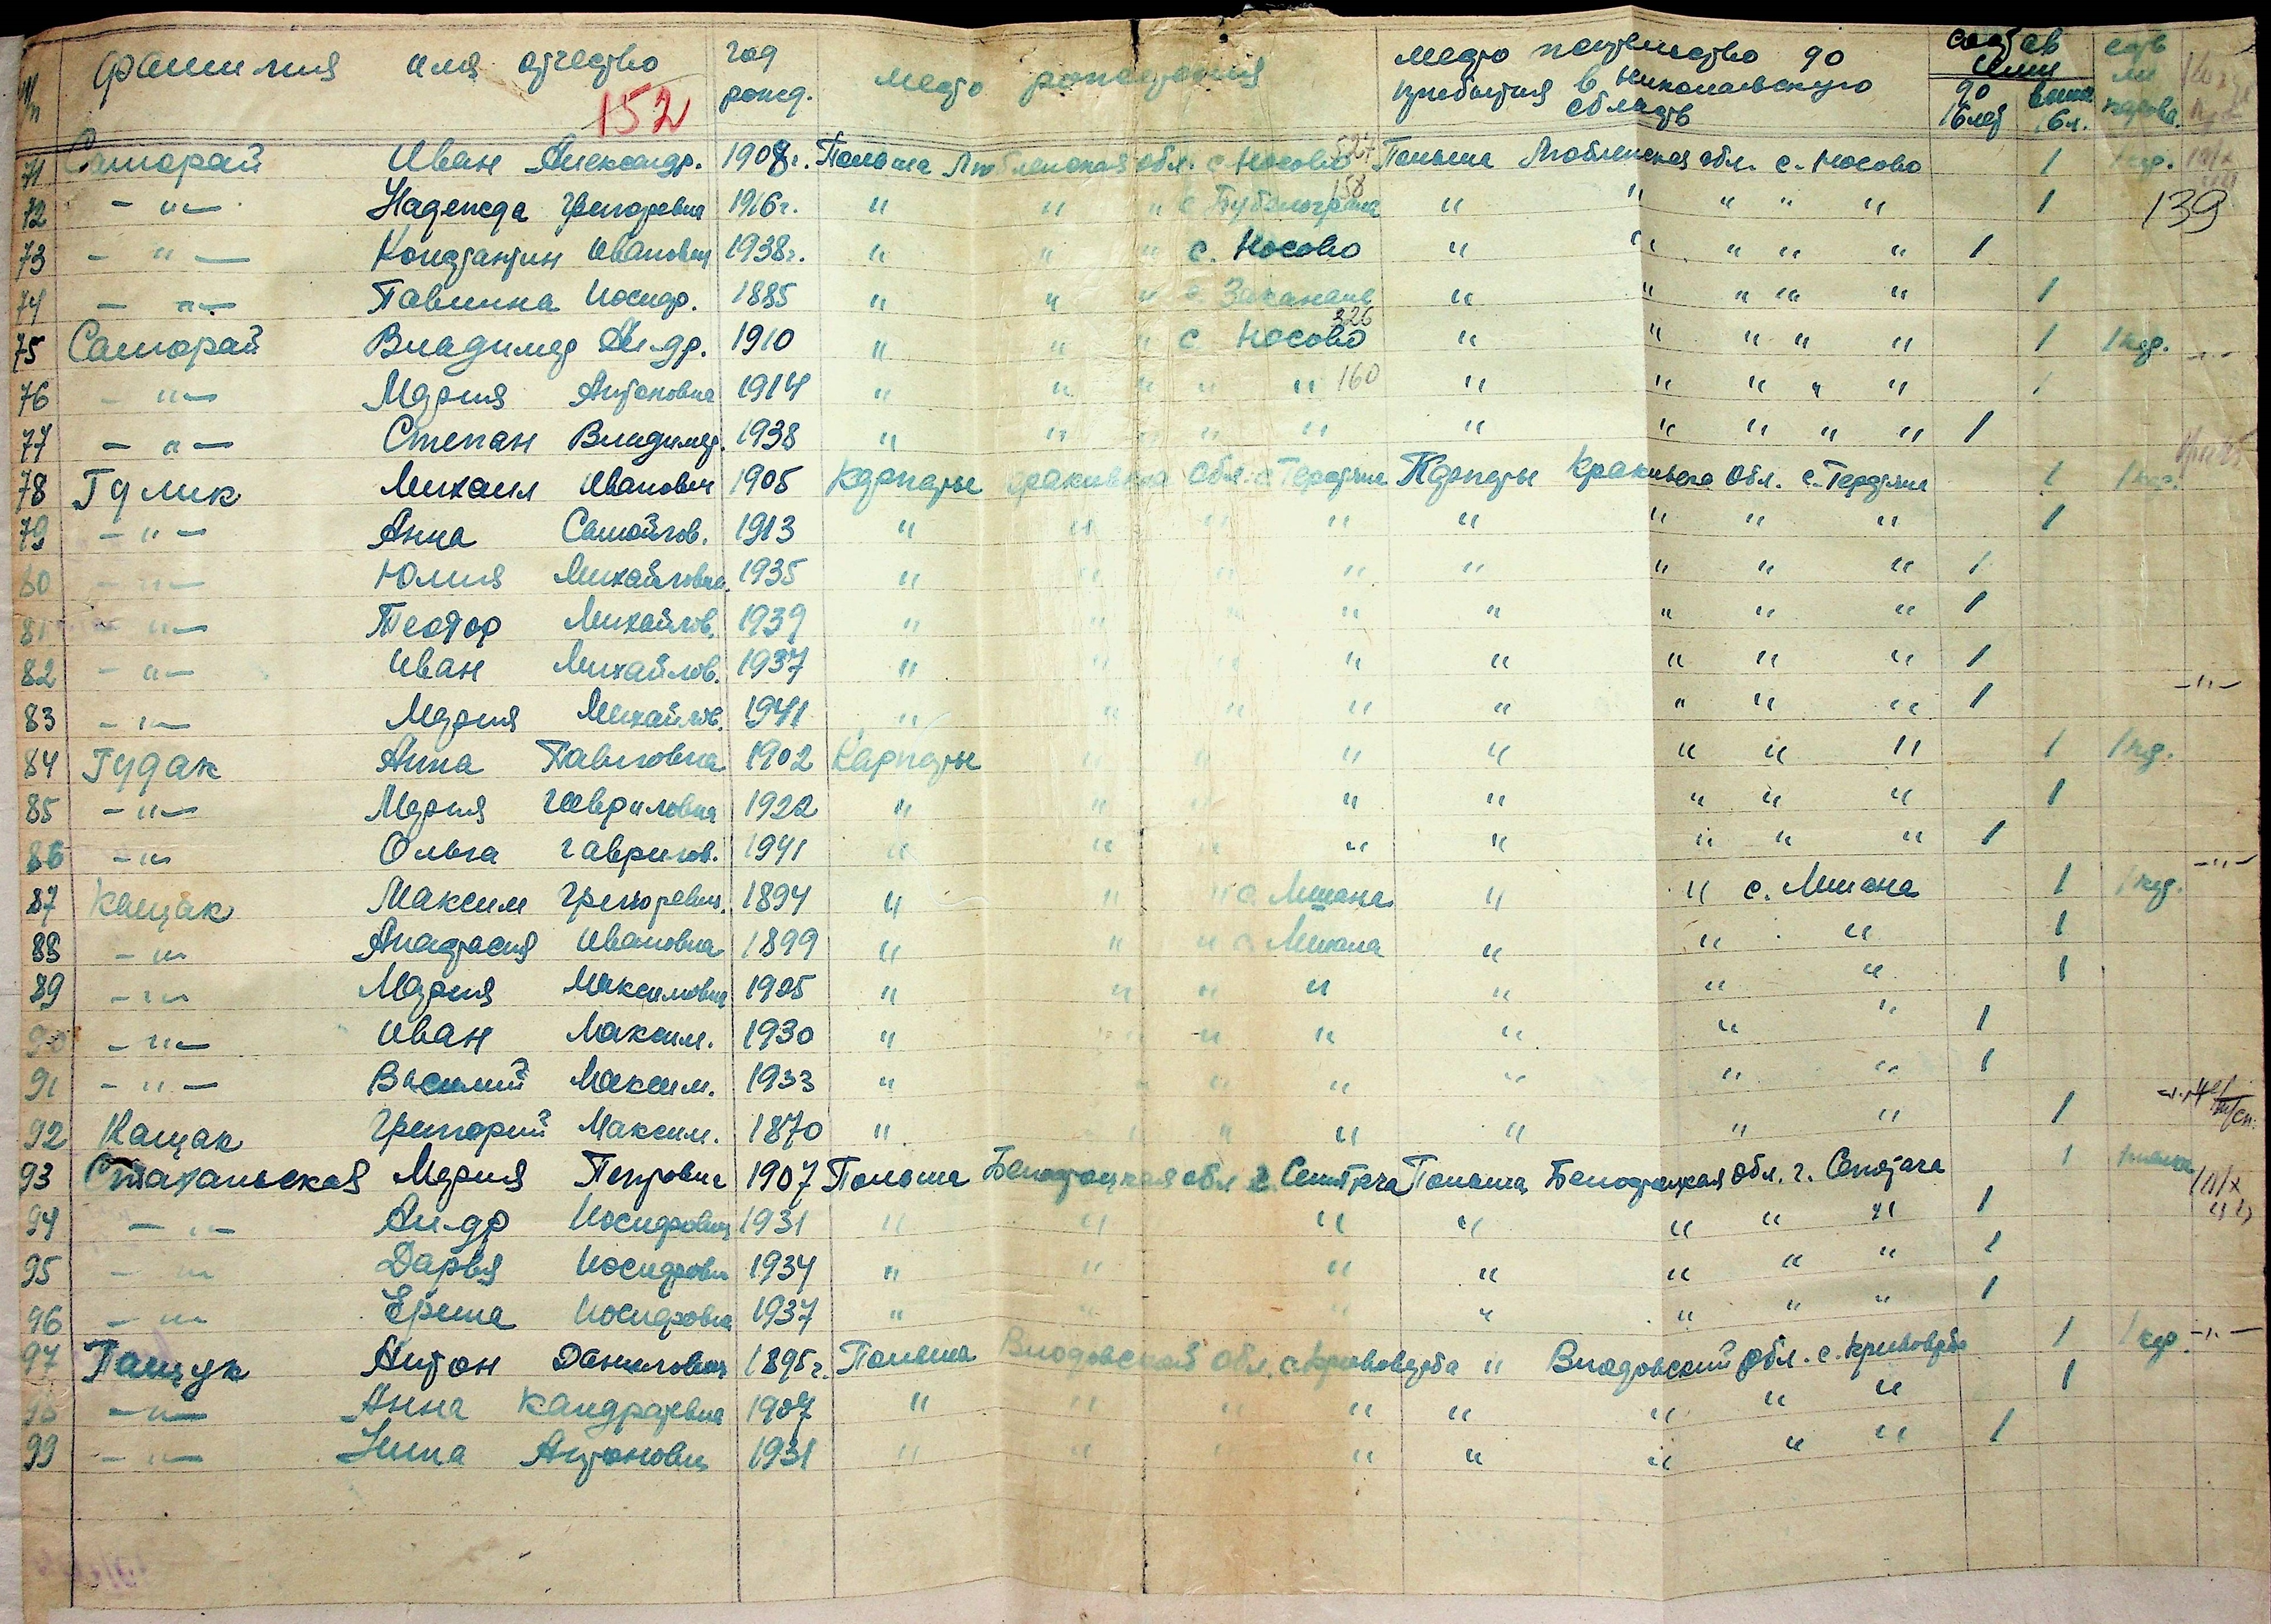 № п/п фамилия имя отчество год рожд. место рождения место жительство до прибытия в Николаевскую область состав семьи до 16 лет выше 16 л. есть ли корова
152
139
71 Саторай Иван Александр. 1908г. Польша Люблинская обл. с. Носово 527 Польша Люблинская обл. с. Носово 1 1 кор.
72 - " - Надежда Григоревна 1916г. " " " с. 158 " " " " " 1
73 - " - Константин Иванович 1938г. " " " с. Носово " " " " " 1
74 - " - Павлина Иосифо. 1885 " " " с. " " " " " 1
75 Саторай Владимер Ал-др. 1910 " " " с Носово 326 " " " " " 1 1 кор. - " -
76 - " - Мария Антоновна 1914 " " " " " 160 " " " " " 1
77 - " - Степан Владимер. 1938 " " " " " " " " " " 1
78 Гулик Михаил Иванович 1905 Карпаты Кракивська обл. с. Карпаты Кракивска обл. с. 1 1 кор.
79 - " - Анна Самойлов. 1913 " " " " " " " " 1
80 - " - Юлия Михайловна 1935 " " " " " " " " 1
81 - " - Теодор Михайлов. 1939 " " " " " " " " 1
82 - " - Иван Михайлов. 1937 " " " " " " " " 1
83 - " - Мария Михайлов. 1941 " " " " " " " " 1 - " -
84 Гудак Анна Павловна 1902 Карпаты " " " " " " " 1 1 кор.
85 - " - Мария Гавриловна 1922 " " " " " " " " 1
86 - " Ольга Гаврилов. 1941 " " " " " " " " 1 - " -
87 Кащак Максим Григоревич. 1894 " " " с. Мшана " " с. Мшана 1 1 кор.
88 - " Анастасия Ивановна 1899 " " " с. Мшана " " " 1
89 - " Мария Максимовна 1925 " " " " " " " 1
90 - " - Иван Максим. 1930 " " " " " " " 1
91 - " - Василий Максим. 1933 " " " " " " " 1
92 Кащак Григорий Максим. 1870 " " " " " " " 1
93 Мария Петровна 1907 Польша Белостоцкая обл. г. Семятаче Польша Белостоцкая обл. г. Семятаче 1
94 - " - Ал-др Иосифович 1931 " " " " " " " 1
95 - " Дарья Иосифовн 1934 " " " " " " " 1
96 - " Иосифовна 1937 " " " " " " " 1
97 Пащук Антон Данилович 1895г. Польша Влодовский обл. с. Кривоверба " Влодовский обл. с. Кривоверба 1 1 кор. - " -
98 - " - Анна Кандратевна 1907 " " " " " " " " 1
99 - " - Нина Антоновн 1931 " " " " " " " " 1